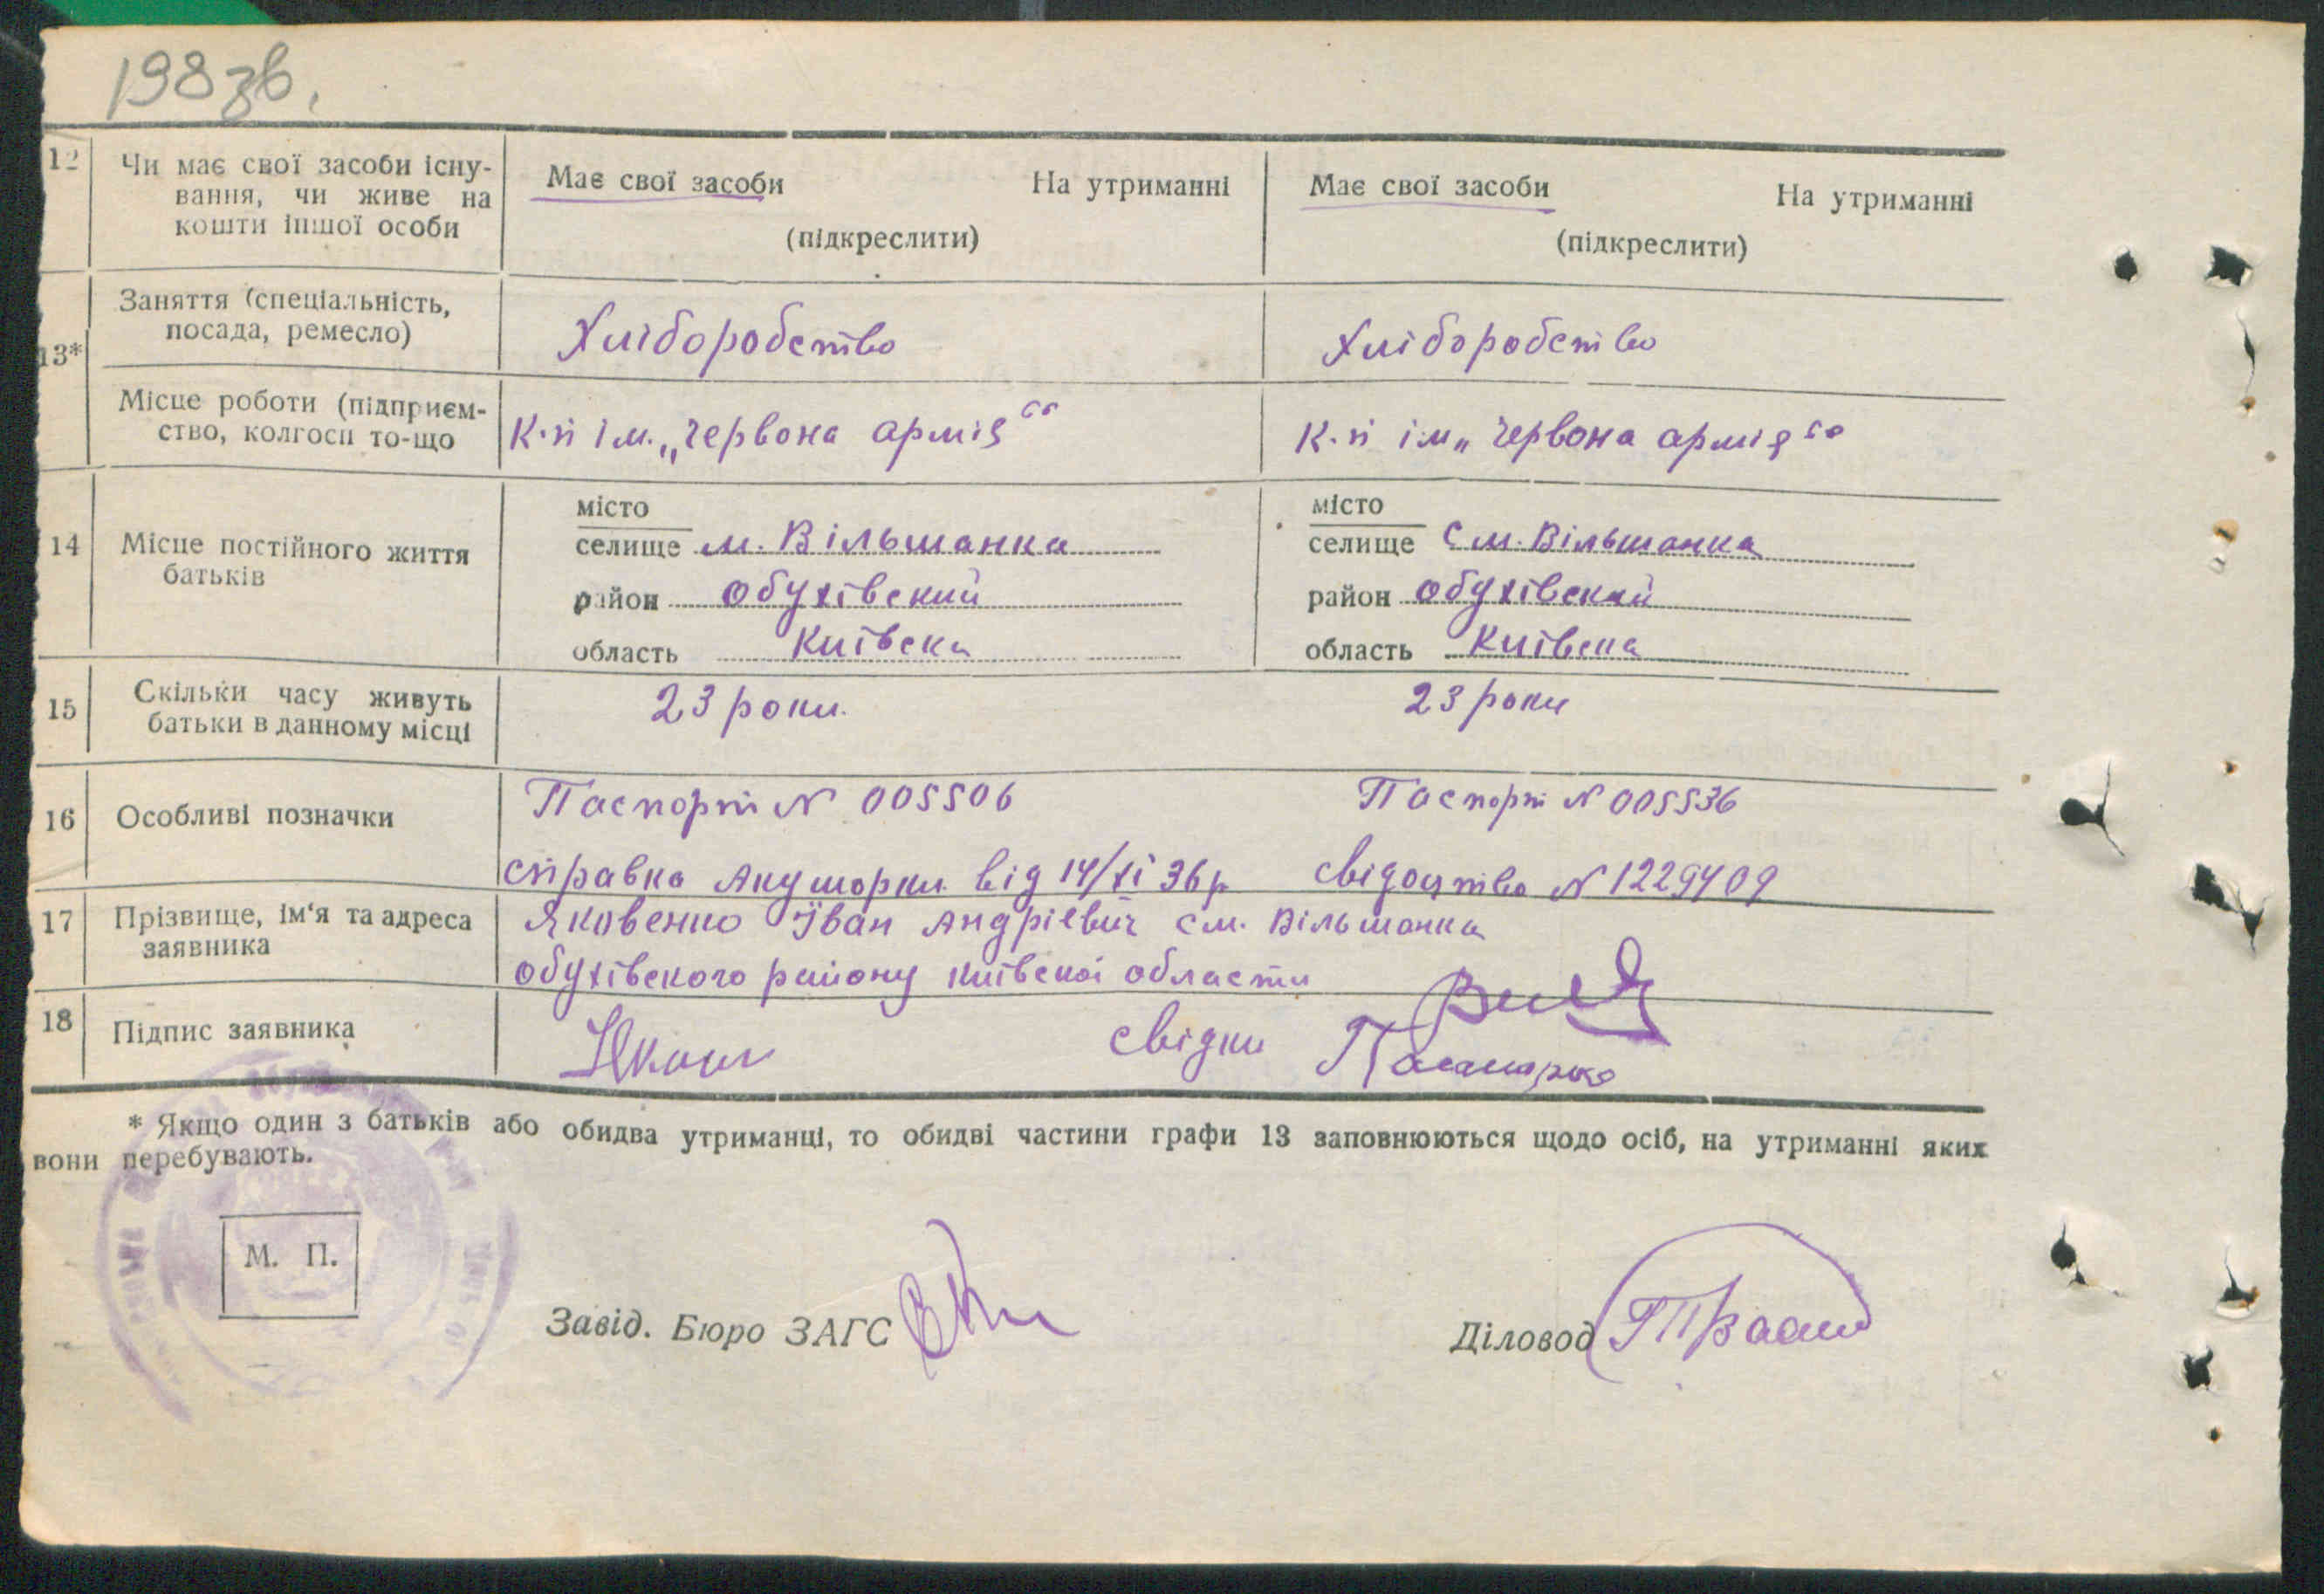 198 зв.
12 Чи має свої засоби існу-
вання, чи живе на
кошти іншої особи
Має свої засоби На утриманні
(підкреслити)
Має свої засоби На утриманні
(підкреслити)
13*
Заняття (спеціальність,
посада, ремесло)
Хліборобство
Хліборобство
Місце роботи (підприєм-
ство, колгосп то-що
К.п ім. „Червона армія“
К.п ім „Червона армія“
14 Місце постійного життя
батьків
місто
селище м. Вільшанка
район Обухівский
область Київска
місто
селище С м. Вільшанка
район Обухівский
область Київска
15 Скільки часу живуть
батьки в данному місці
23 роки.
23 роки
16 Особливі позначки
Паспорт N 005506
справка Акушорки від 14/XI 36 р
Паспорт N 005536
свідоцтво N 1229409
17 Прізвище, ім'я та адреса
заявника
Яковенко Іван Андрієвич см. Вільшанка
обухівского району київскої области
18 Підпис заявника
свідки
* Якщо один з батьків або обидва утриманці, то обидві частини графи 13 заповнюються щодо осіб, на утриманні яких
вони перебувають.
М. П.
Завід. Бюро ЗАГС
Діловод